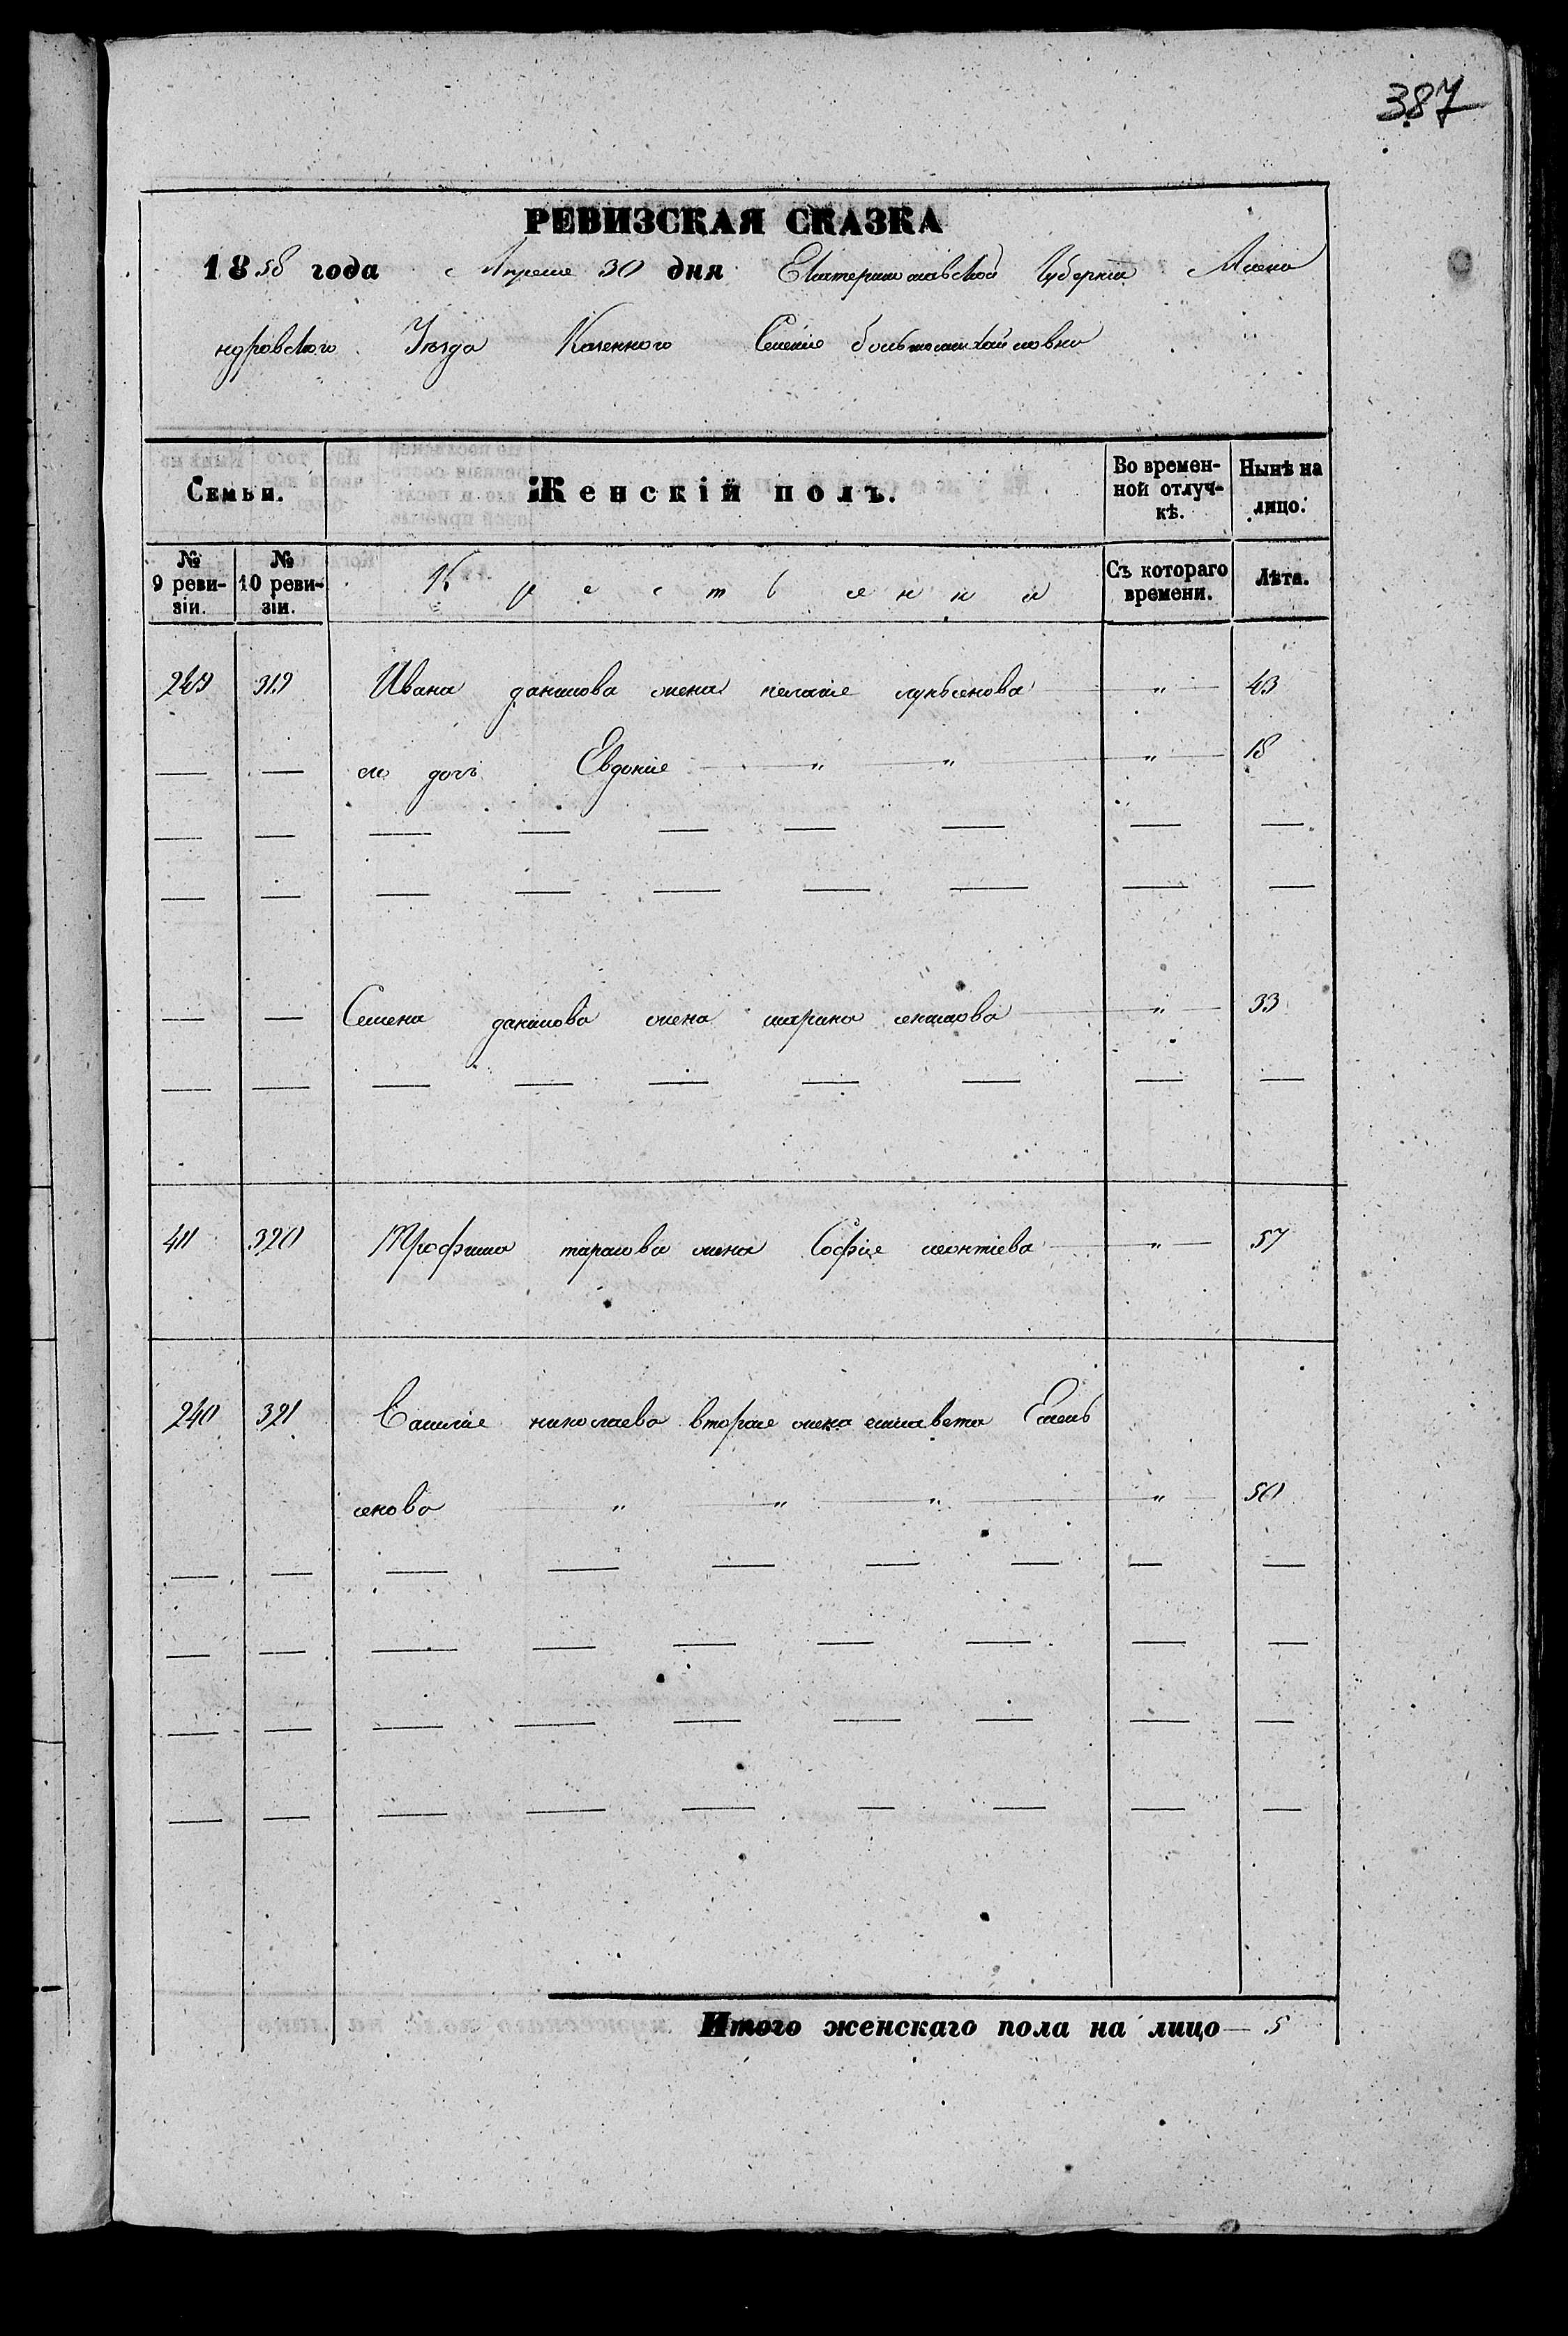 387
РЕВИЗСКАЯ СКАЗКА
1858 года Апреля 30 дня Екатеринославской Губернии Алекса
ндровского Уезда Казенного Селения большомихайловки
Семьи. Женскій полъ. Во времен-ной отлуч-кѣ. Нынѣ на лицо.
№ 9 реви-зіи. № 10 реви-зіи. Крестьянки Съ котораго времени. Лѣта.
319 Ивана данилова жена пелагие лукьенова " 43
дочь Евдокие " " " 18
Семена данилова жена марина " 33
411 320 Трофима тарасова жена Софие леонтиева " 57
240 321 Василие николаева вторае жена елисавета Емель
енова " " " " 50
Итого женскаго пола на лицо 5